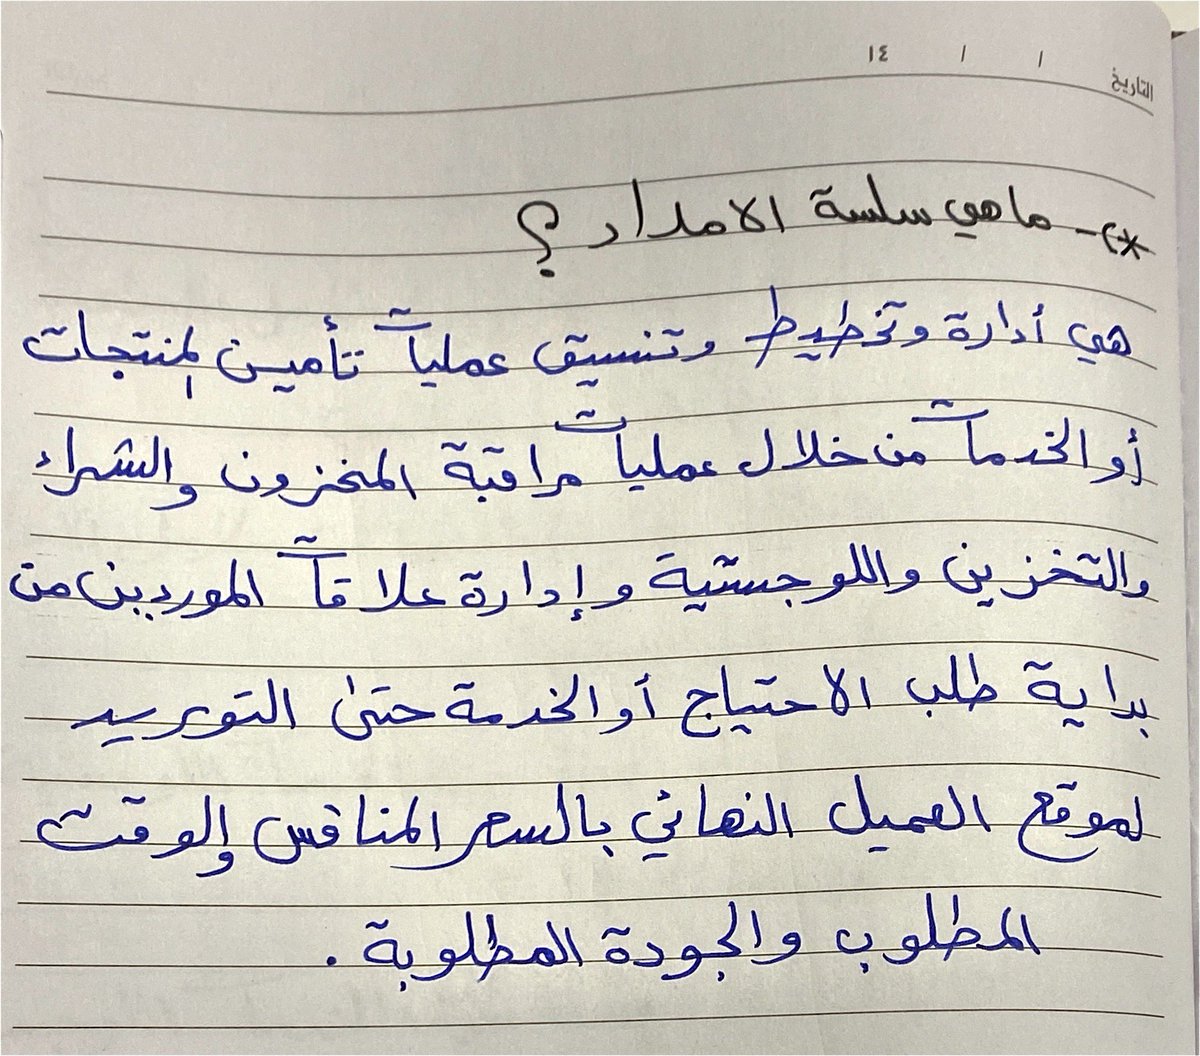 التاريخ / / ١٤
*)- ما هي سلسة الامداد ؟
هي أدارة وتخطيط وتنسيق عمليات تأمين المنتجات
أو الخدمات من خلال عمليات مراقبة المخزون والشراء
والتخزين واللوجستية وإدارة علاقات الموردين من
بداية طلب الاحتياج أو الخدمة حتى التوريد
لموقع العميل النهائي بالسعر المنافس والوقت
المطلوب والجودة المطلوبة .